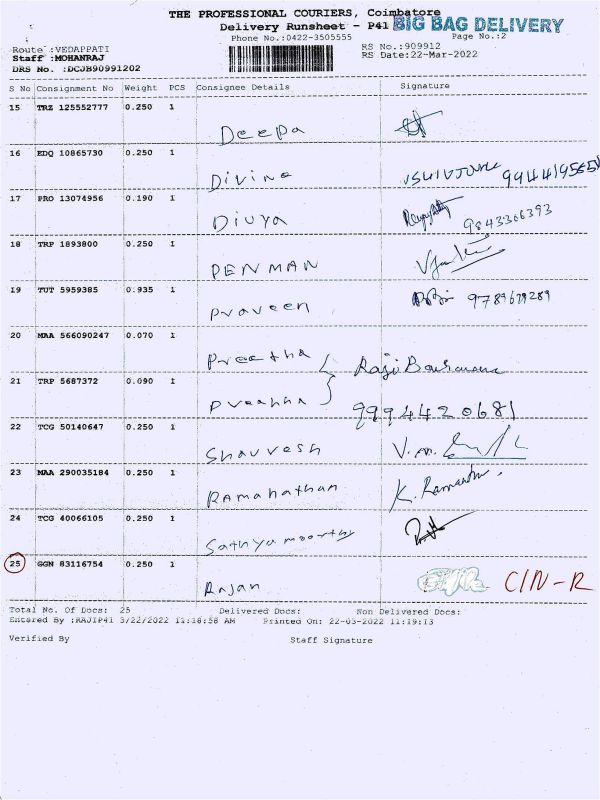 THE PROFESSIONAL COURIERS, Coimbatore
Delivery Runsheet - P41 BIG BAG DELIVERY
Phone No.:0422-3505555 Page No.:2
Route :VEDAPPATI RS No.:909912
Staff :MOHANRAJ RS Date:22-Mar-2022
DRS No. :DCJB90991202
S No Consignment No Weight PCS Consignee Details Signature
15 TRZ 125552777 0.250 1
Deepa
16 EDQ 10865730 0.250 1
Divine
17 PRO 13074956 0.190 1
Divya 9843366393
18 TRP 1893800 0.250 1
PENMAN
19 TUT 5959385 0.935 1
Praveen
20 MAA 566090247 0.070 1
Preetha Raji
21 TRP 5687372 0.090 1
Preetha 9994420681
22 TCG 50140647 0.250 1
Sharvesh V.m.
23 MAA 290035184 0.250 1
Ramanathan K. Ramanathan
24 TCG 40066105 0.250 1
Sathyamoorthy
25 GGN 83116754 0.250 1
Rajan C/N-R
Total No. Of Docs: 25 Delivered Docs: Non Delivered Docs:
Entered By :RAJIP41 3/22/2022 11:18:58 AM Printed On: 22-03-2022 11:19:13
Verified By Staff Signature